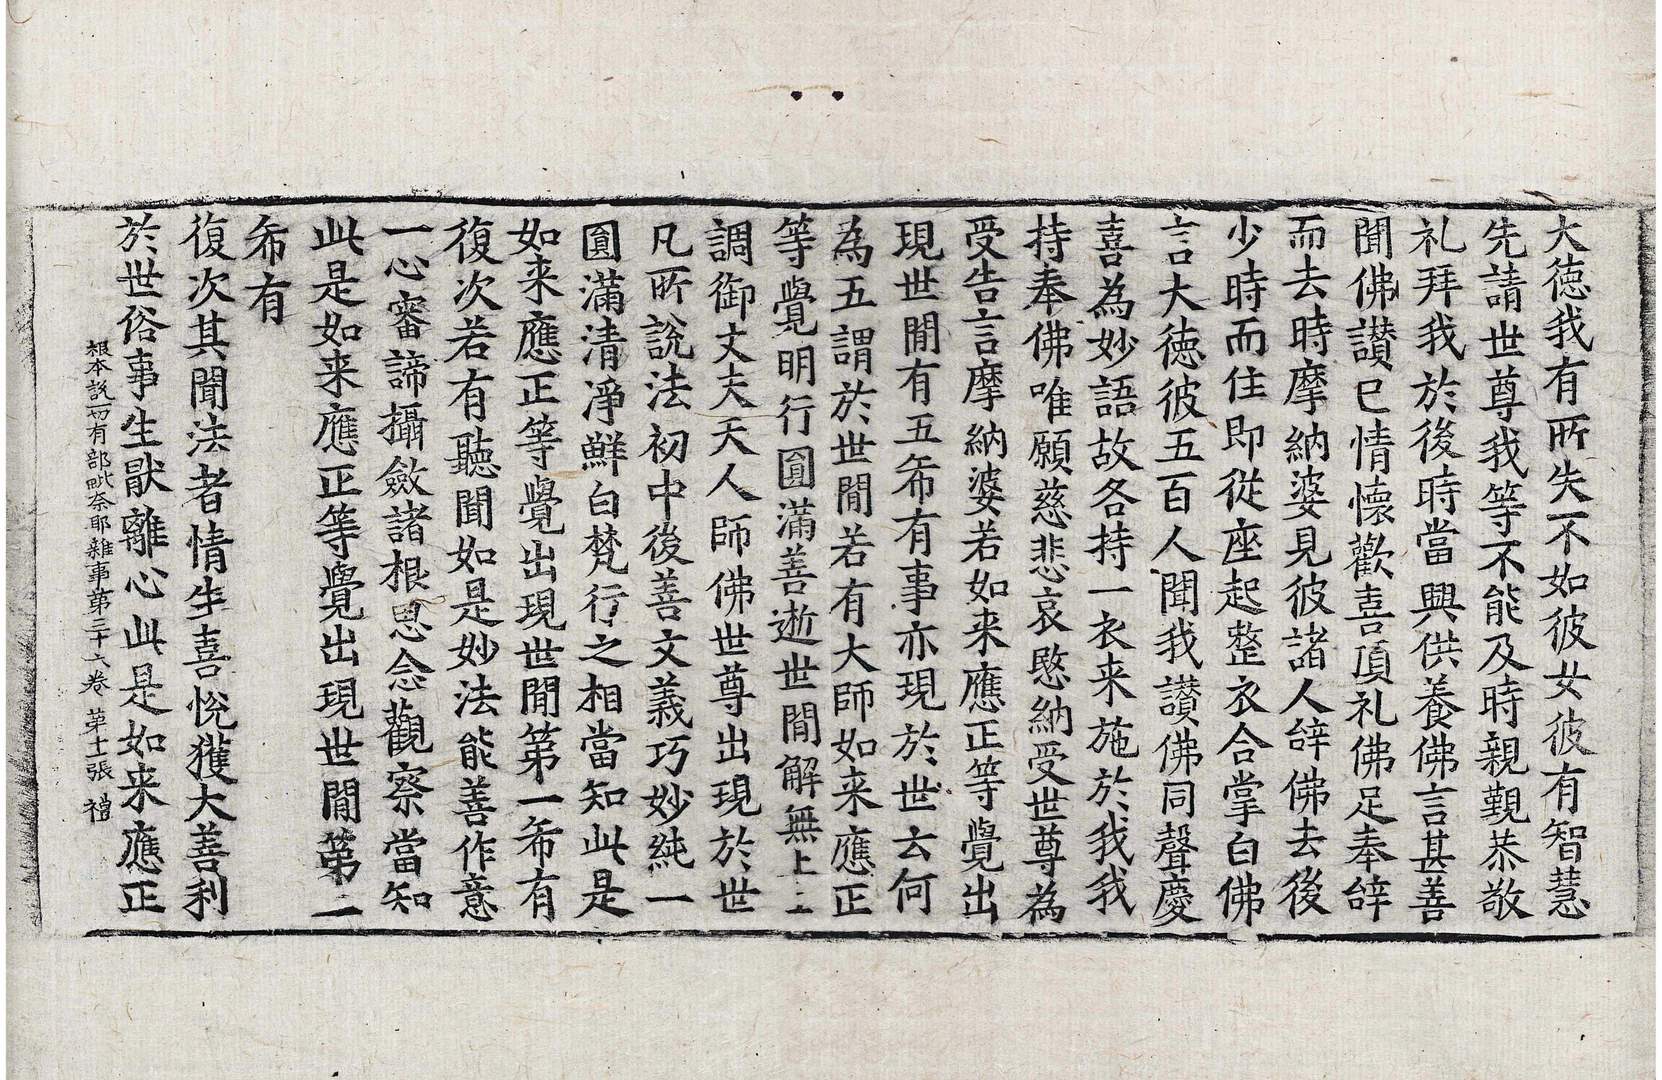 大德我有所失不如彼女彼有智慧
先請世尊我等不能及時親覲恭敬
礼拜我於後時當興供養佛言甚善
聞佛讃已情懷歡喜頂礼佛足奉辝
而去時摩納婆見彼諸人辝佛去後
少時而住即從座起整衣合掌白佛
言大徳彼五百人聞我讃佛同聲慶
喜為妙語故各持一衣来施於我我
持奉佛唯願慈悲哀愍納受世尊為
受告言摩納婆若如来應正等覺出
現世間有五希有事亦現於世云何
為五謂於世間若有大師如来應正
等覺明行圓滿善逝世間解無上士
調御丈夫天人師佛世尊出現於世
凡所說法初中後善文義巧妙純一
圓滿清淨鮮白梵行之相當知此是
如来應正等覺出現世間第一希有
復次若有聽聞如是妙法能善作意
一心審諦攝斂諸根思念觀察當知
此是如来應正等覺出現世間第一
希有
復次其聞法者情生喜悅獲大善利
於世俗事生猒離心此是如来應正
根本説一切有部毗奈耶雜事第三十六卷 第十一張